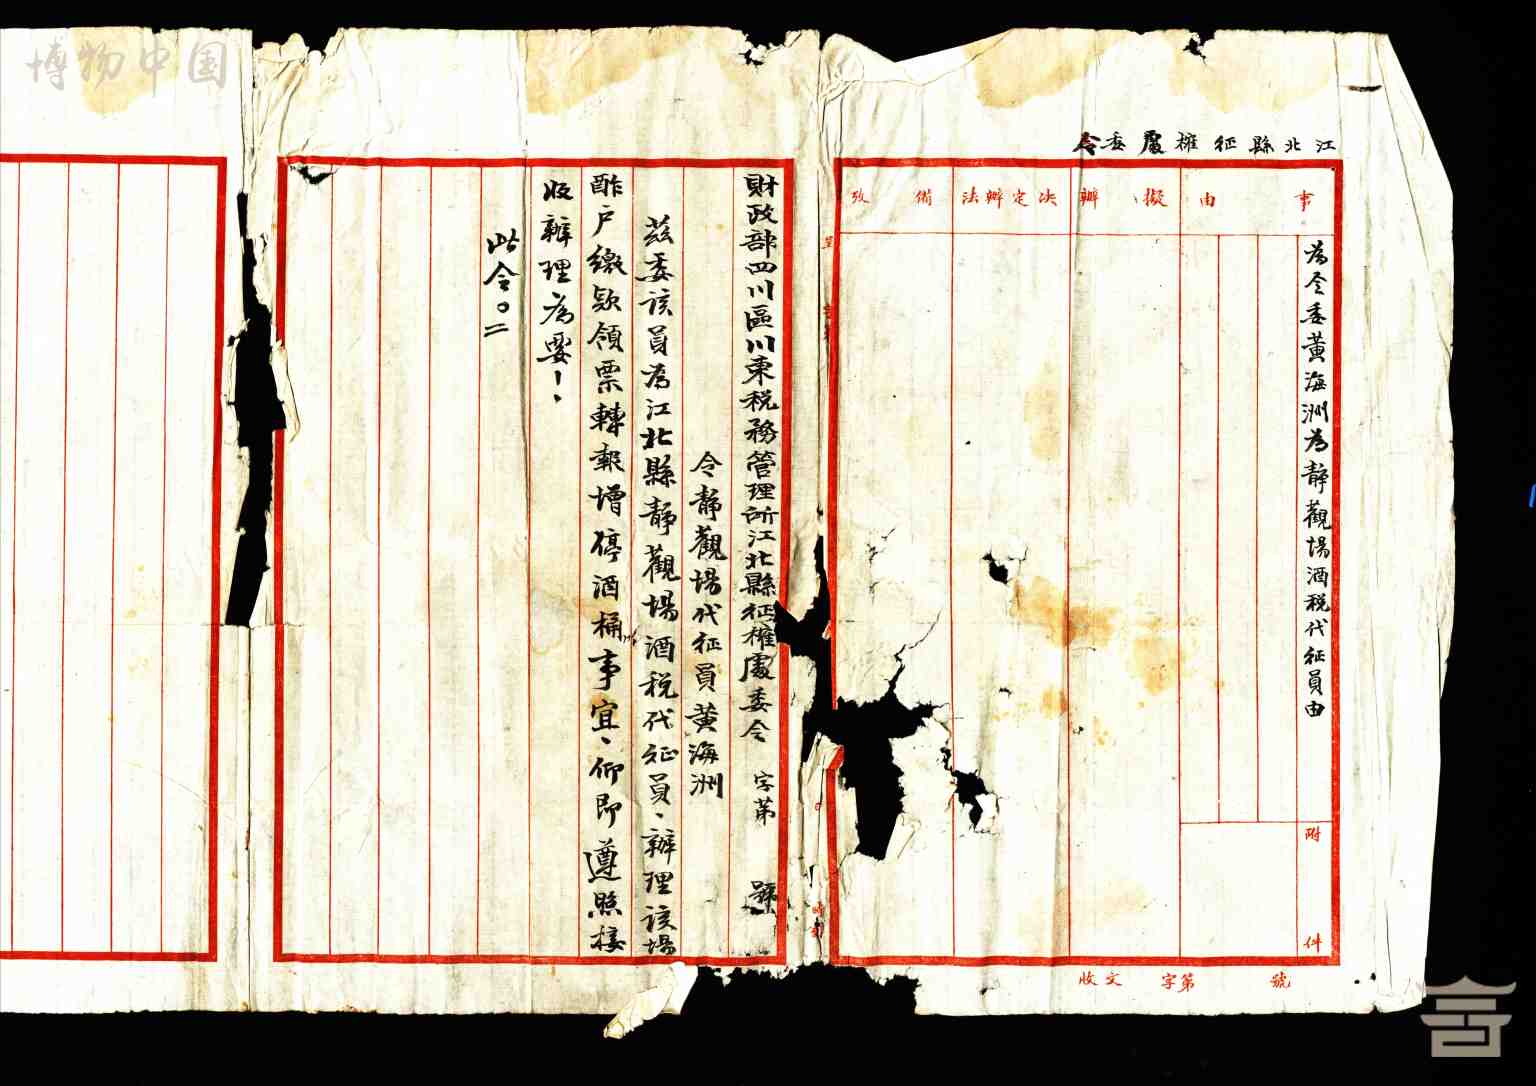 江北縣征榷處委令
事由
擬辦
決定辦法
備攷
為令委黃海洲為靜觀場酒稅代征員由
附件
收文 字第 號
財政部四川區川東稅務管理所江北縣征榷處委令 字第 號
令靜觀場代征員黃海洲
茲委該員為江北縣靜觀場酒稅代征員、辦理該場
酢户繳款領票轉報增停酒桶事宜、仰即遵照接
收辦理為要！、
此令。二
博物中国